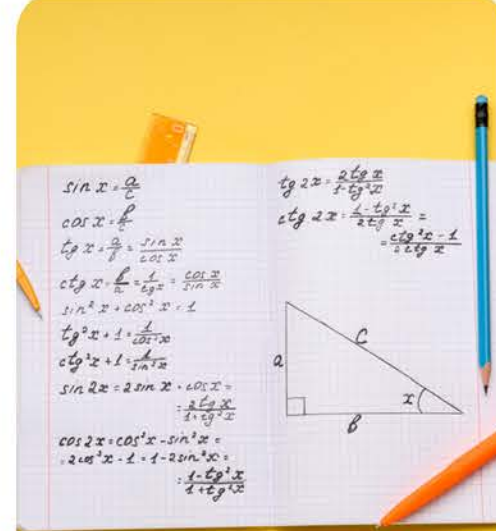 sin x = a/c
cos x = b/c
tg x = a/b = sin x/cos x
ctg x = b/a = 1/tg x = cos x/sin x
sin² x + cos² x = 1
tg² x + 1 = 1/cos² x
ctg² x + 1 = 1/sin² x
sin 2x = 2 sin x · cos x =
= 2 tg x/1 + tg² x
cos 2x = cos² x - sin² x =
= 2 cos² x - 1 = 1 - 2 sin² x =
= 1 - tg² x/1 + tg² x
tg 2x = 2 tg x/1 - tg² x
ctg 2x = 1 - tg² x/2 tg x =
= ctg² x - 1/2 ctg x
a
c
x
b